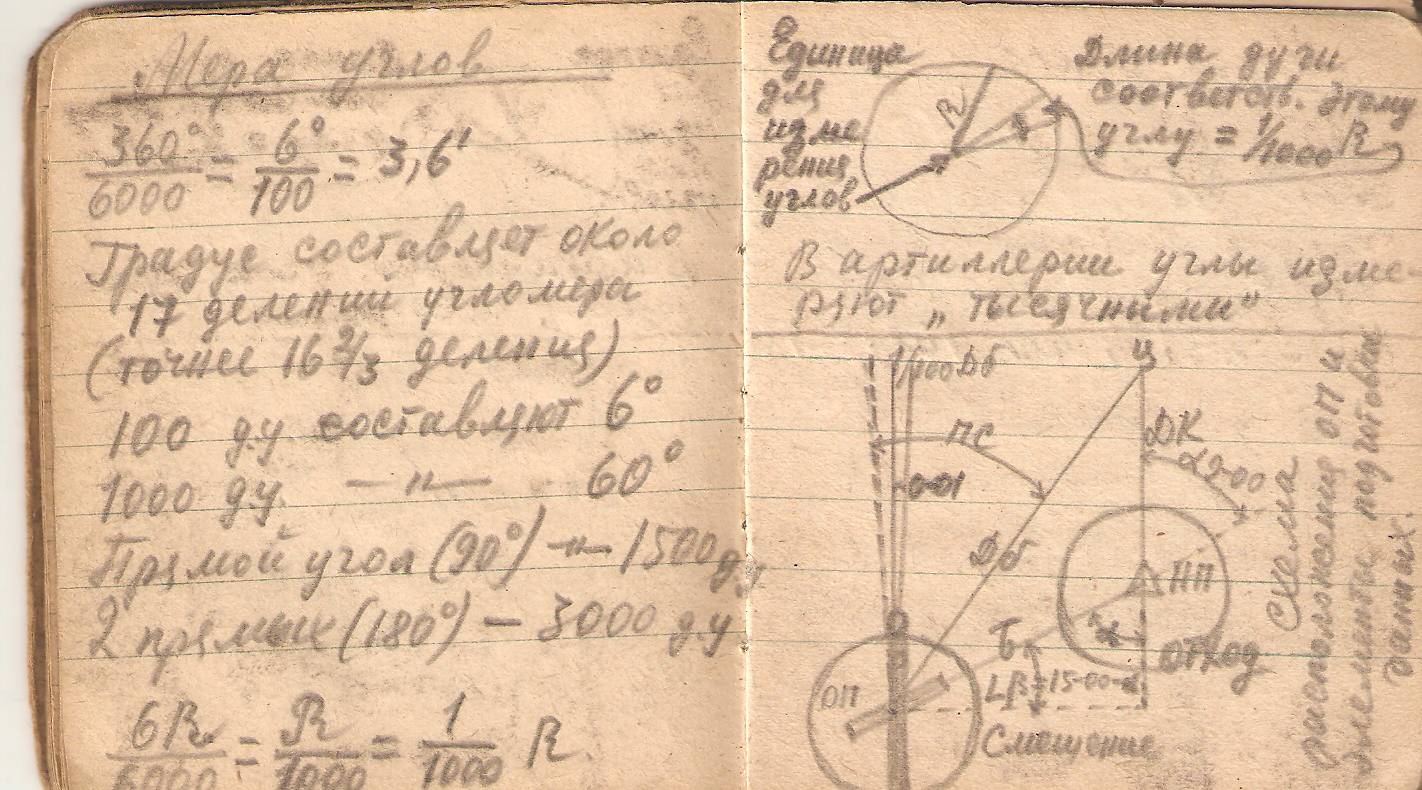 Мера углов
360°/6000 = 6°/100 = 3,6'
Градус составляет около
17 делений угломера
(точнее 16 2/3 деления)
100 д.у составляют 6°
1000 д.у. —"— 60°
Прямой угол (90°) —"— 1500 д.у
2 прямых (180°) — 3000 д.у
6R/6000 = R/1000 = 1/1000 R
Единица
для
изме
рения
углов
R
Длина дуги
соответств. этому
углу = 1/1000 R
В артиллерии углы изме-
ряют „тысячными“
1/1000 Дб
Ц
ПС
ДК
0-01
Дб
НП
ОП
Отход
Смещение
Схема
расположения ОП и
элементы подготовки
данных.